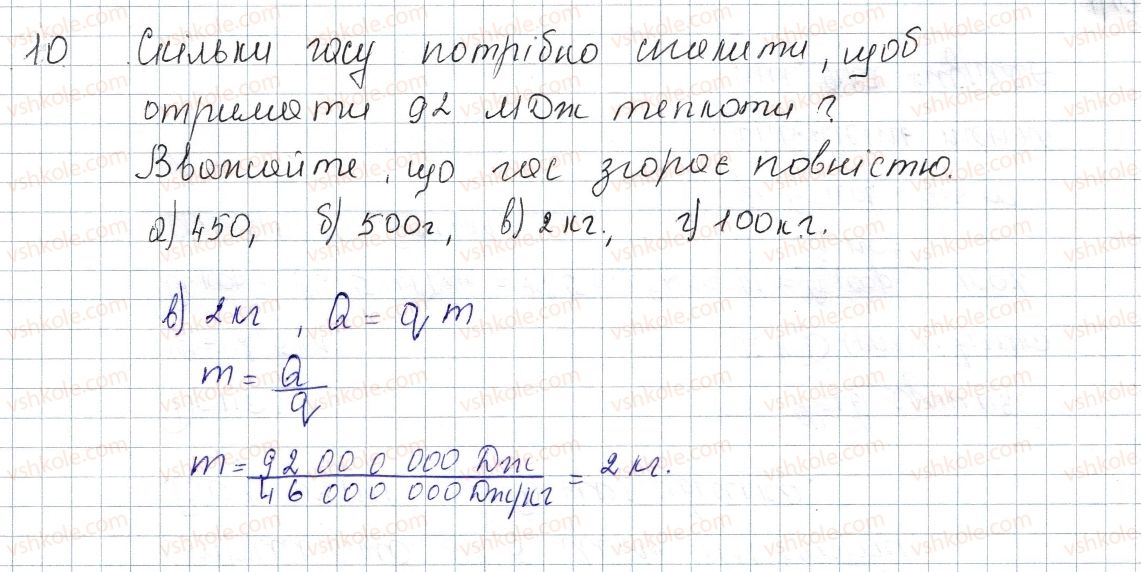 10 Скільки гасу потрібно спалити, щоб
отримати 92 МДж теплоти?
Вважайте, що гас згорає повністю.
а) 450, б) 500г, в) 2 кг., г) 100кг.
в) 2 кг, Q = q m
m = Q/q
m = 92 000 000 Дж / 46 000 000 Дж/кг = 2 кг.